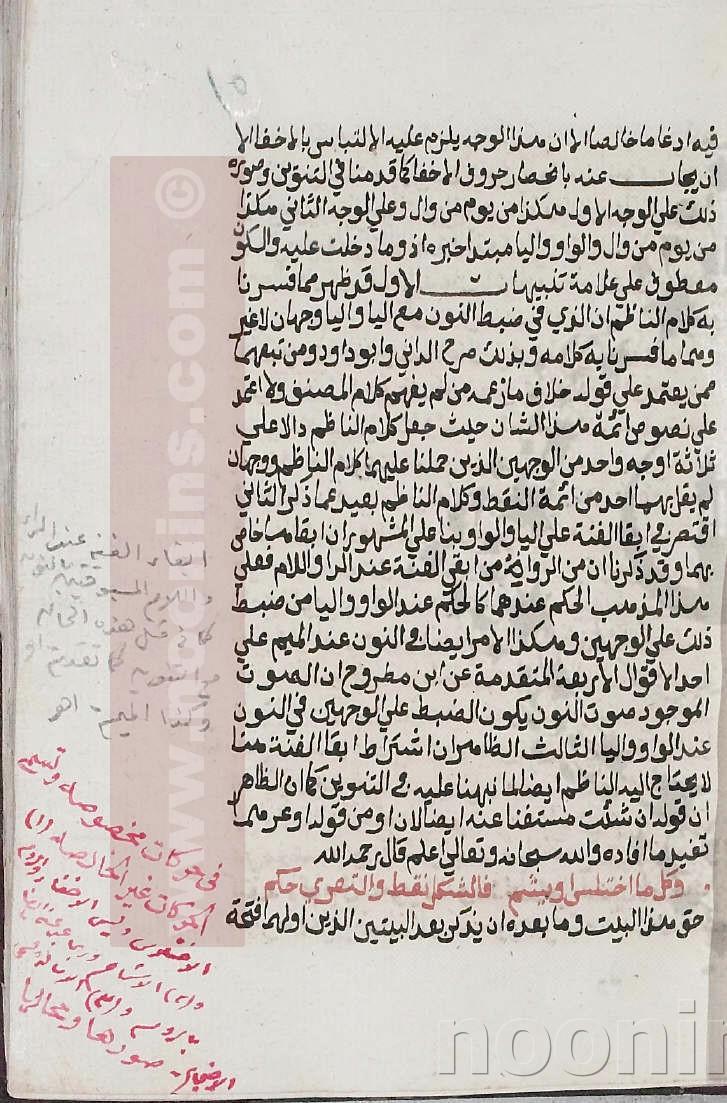 فيه ادغاما خالصا الا ان هذا الوجه يلزم عليه الالتباس بالاخفا الا
ان يجاب عنه بانحصار حروف الاخفا كما قدمنا في التنوين وصورة
ذلك علي الوجه الاول هكذا من يوم من وال وعلي الوجه الثاني هكذا
من يوم من وال والواو واليا مبتدا خبره اذوما دخلت عليه والسكون
معطوف علي علامة تنبيهات الاول قد ظهر مما فسرنا
به كلام الناظم ان الذي في ضبط النون مع اليا واليا وجهان لا غير
ومما ما فسرنا به كلامه وبذلك صرح الداني وابو داود ومن تبعهما
ممن يعتمد علي قوله خلاف ما زعمه من لم يفهم كلام المصنف ولا اعتمد
علي نصوص ائمة هذا الشان حيث جعل كلام الناظم دالا علي
ثلاثة اوجه واحد من الوجهين الذين حملنا عليهما كلام الناظم ووجهان
لم يقل بهما احد من ائمة النقط وكلام الناظم بعيد عما ذكر الثاني
اقتصر في ابقا الغنة علي اليا والواو بنا علي المشهور ان ابقاها خاص
بهما وقد ذكرنا ان من الرواة من ابقي الغنة عند الرا واللام فعلي
هذا المذهب الحكم عندهما كالحكم عند الواو واليا من ضبط
ذلك علي الوجهين وهكذا الامر ايضا في النون عند الميم علي
احد الاقوال الاربعة المتقدمة عن ابن مطروح ان الصوت
الموجود صوت النون يكون الضبط علي الوجهين في النون
عند الواو واليا الثالث الظاهر ان اشتراط ابقا الغنة هنا
لا يحتاج اليه الناظم ايضا لما نبهنا عليه في التنوين كما ان الظاهر
ان قوله ان شئت مستغنا عنه ايضا لان او من قوله او عرهما
تفيد ما افاده والله سبحانه وتعالي اعلم قال رحمه الله
وكل ما اختلس او يشم فالشكل نقط والتعري حكم
حق هذا البيت وما بعده ان يذكر بعد البيتين الذين اولهما افتحة
ابقاء الغنة عند الراء
واللام
كما تقدم
وكذا الميم اهـ
في حركات مخصوصة
الحركات غير الخالصة (١)